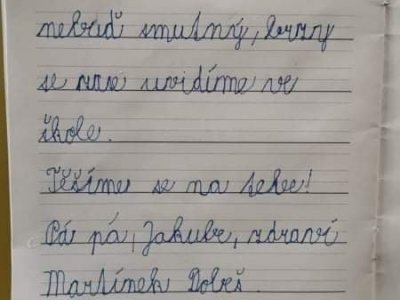 nebuď smutný, brzy
se zase uvidíme ve
škole.
Těšíme se na sebe!
Pá pá, Jakube, zdraví
Martínek Dobeš.